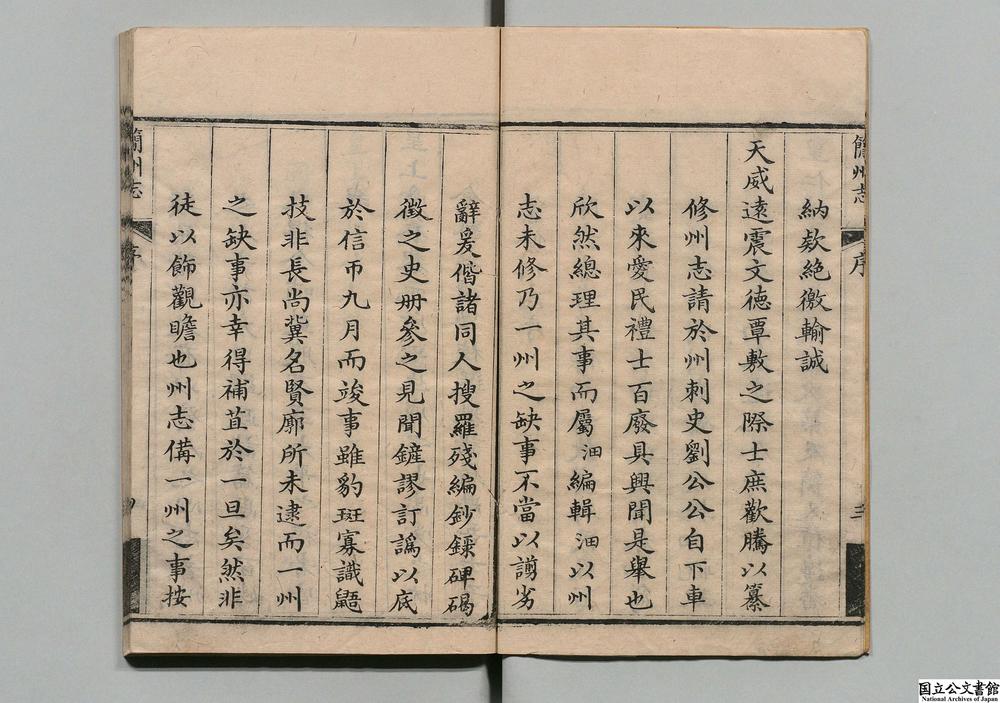 簡州志
序
納欵絕徼輸誠
天威遠震文徳覃敷之際士庶歡騰以纂
修州志請於州刺史劉公公自下車
以來愛民禮士百廢具興聞是舉也
欣然總理其事而屬沺編輯沺以州
志未修乃一州之缺事不當以謭劣
辭爰偕諸同人搜羅殘編鈔錄碑碣
徴之史册參之見聞鏟謬訂譌以底
於信帀九月而竣事雖豹斑寡識鼯
技非長尚冀名賢廓所未逮而一州
之缺事亦幸得補苴於一旦矣然非
徒以飾觀瞻也州志僃一州之事按
簡州志
序
国立公文書館
National Archives of Japan